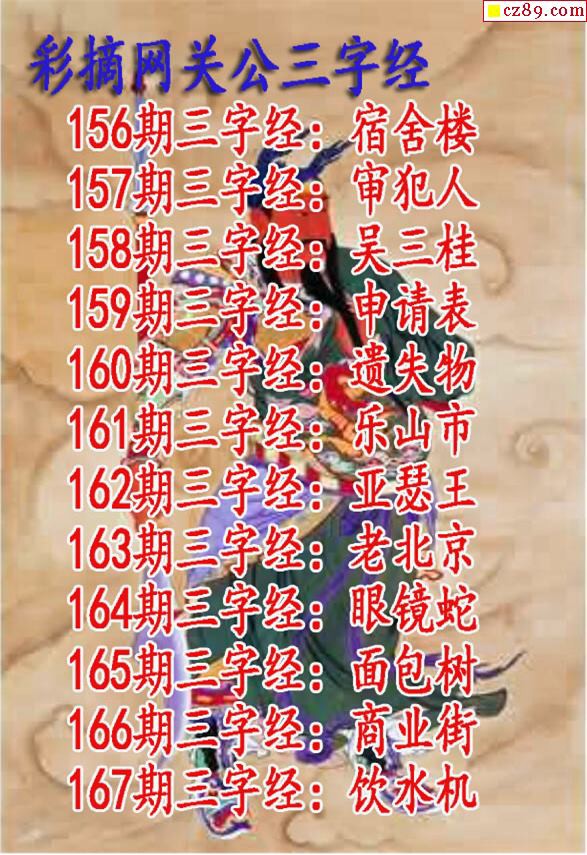 cz89.com
彩摘网关公三字经
156期三字经：宿舍楼
157期三字经：审犯人
158期三字经：吴三桂
159期三字经：申请表
160期三字经：遗失物
161期三字经：乐山市
162期三字经：亚瑟王
163期三字经：老北京
164期三字经：眼镜蛇
165期三字经：面包树
166期三字经：商业街
167期三字经：饮水机